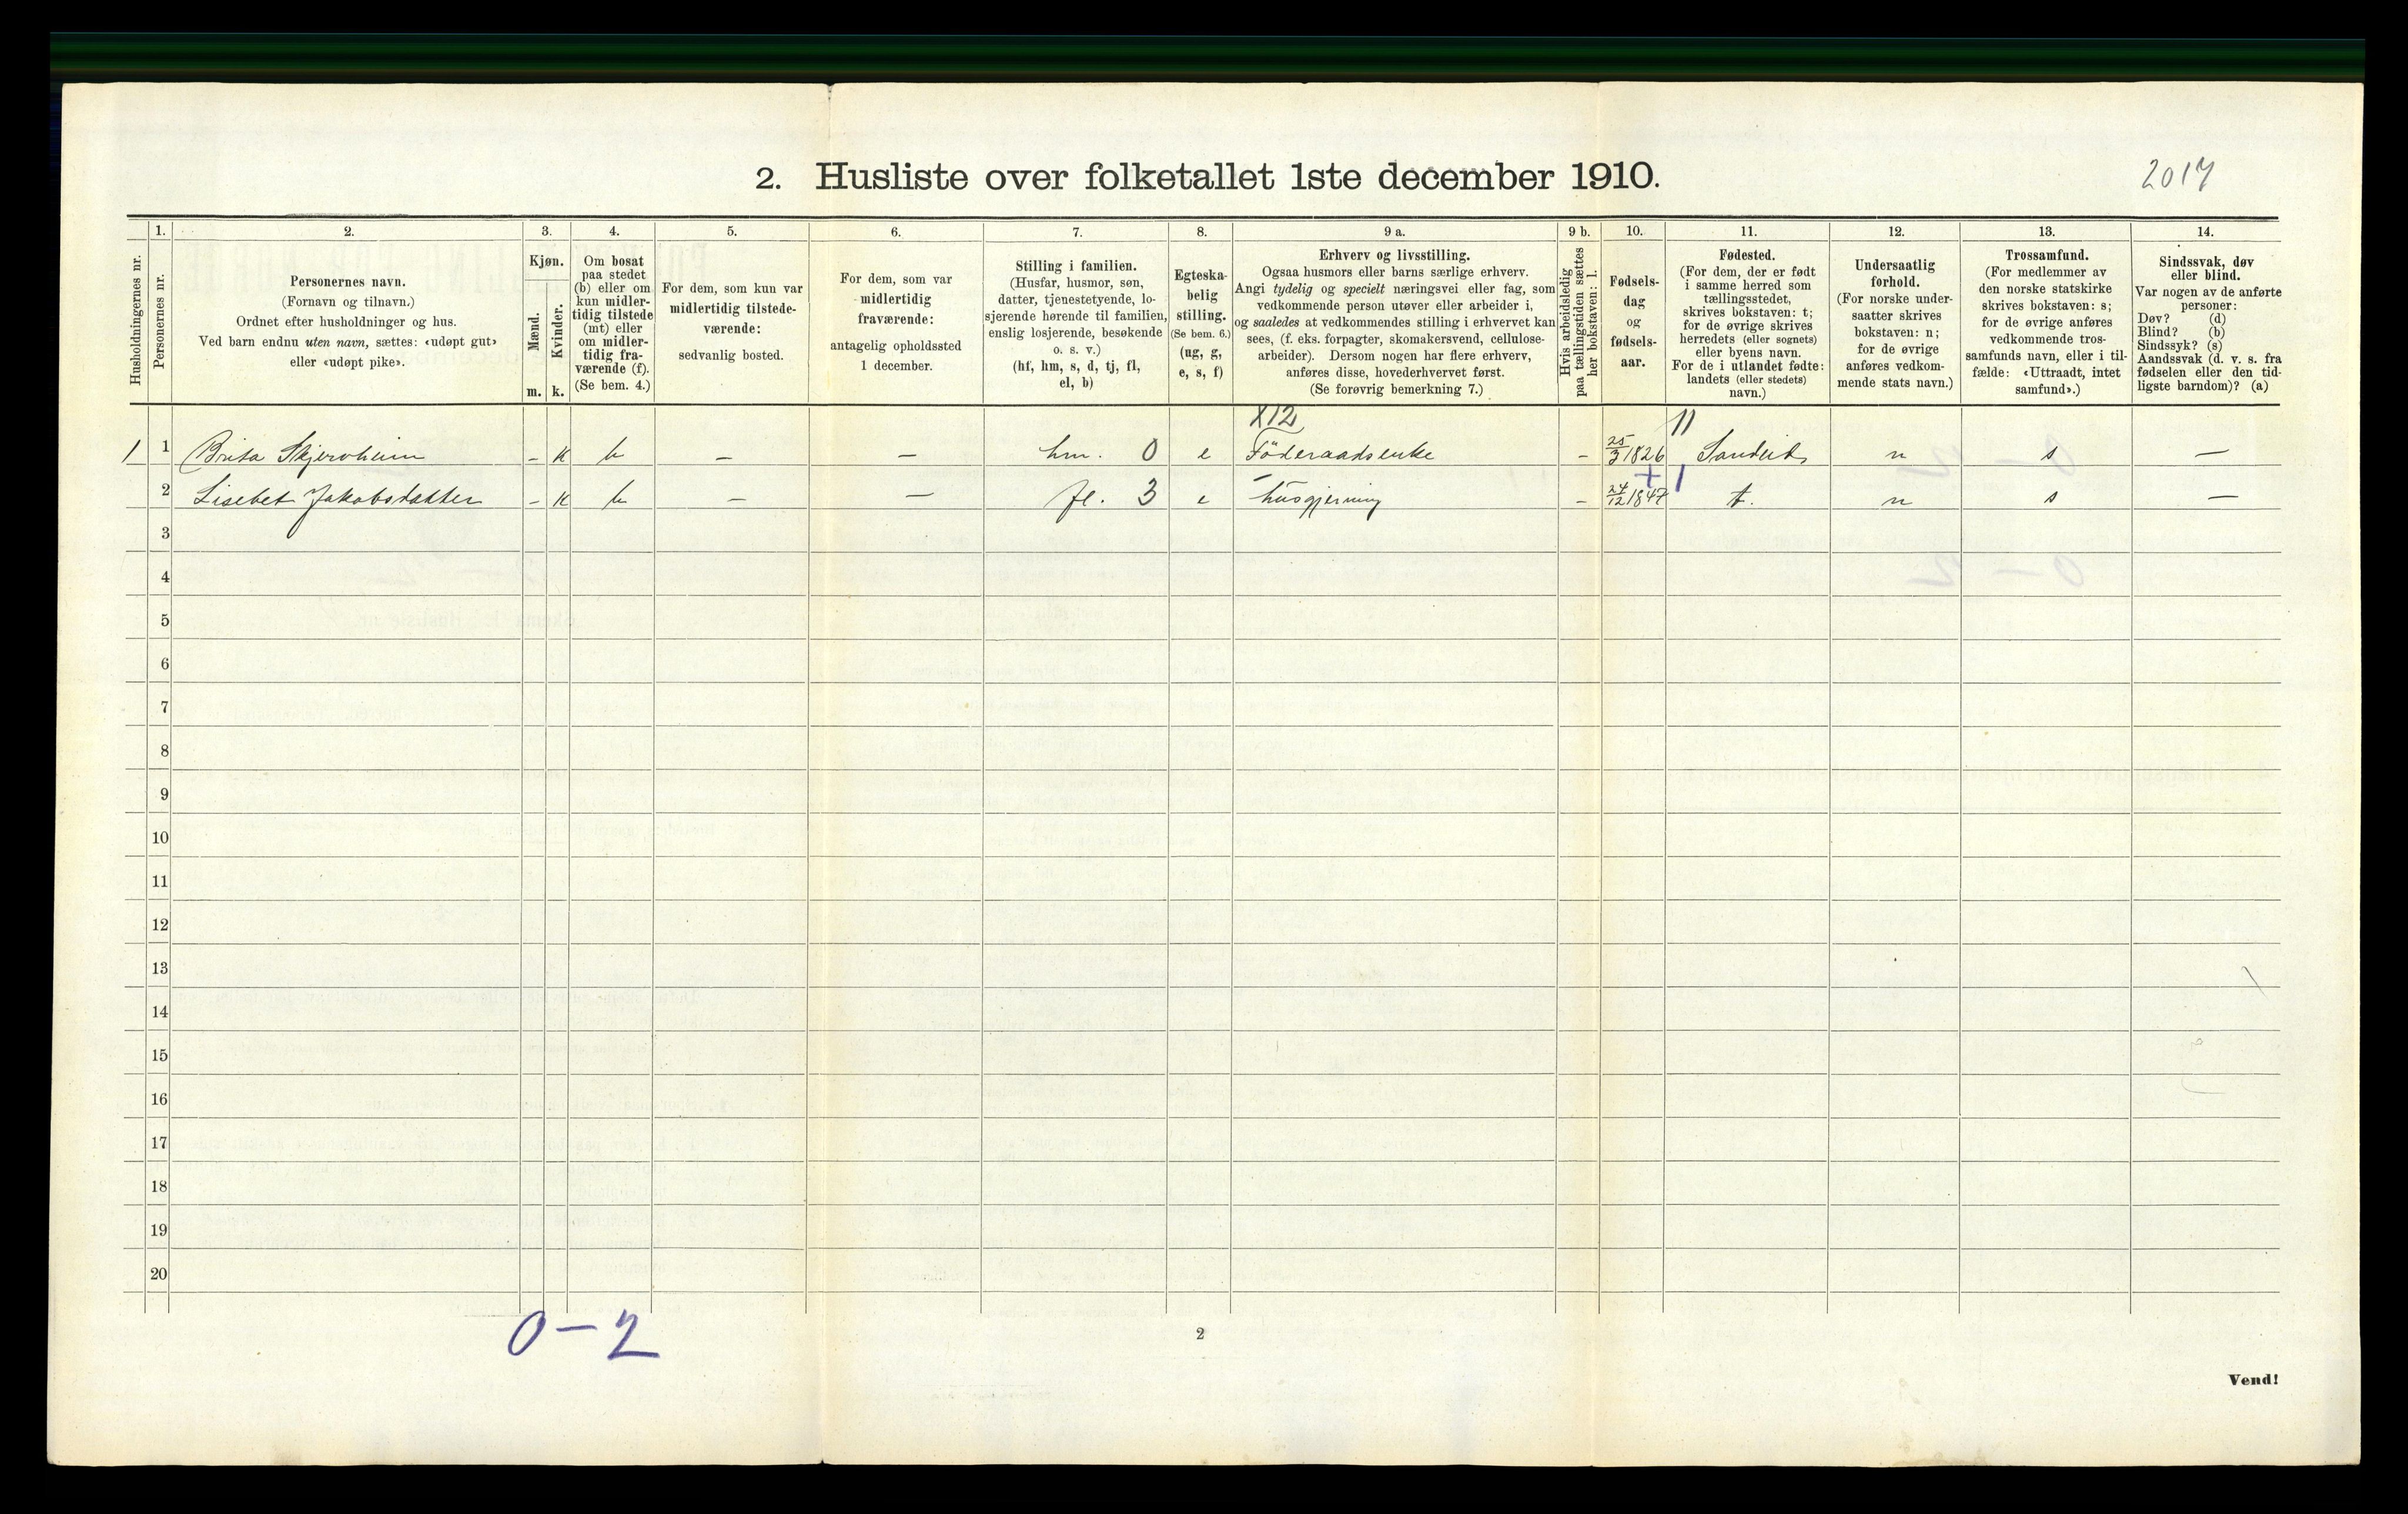 2. Husliste over folketallet 1ste december 1910.
2017
Husholdningernes nr.
1.
Personernes nr.
2.
Personernes navn.
(Fornavn og tilnavn.)
Ordnet efter husholdninger og hus.
Ved barn endnu uten navn, sættes: «udøpt gut»
eller «udøpt pike».
3.
Kjøn.
Mænd.
m.
Kvinder.
k.
4.
Om bosat
paa stedet
(b) eller om
kun midler-
tidig tilstede
(mt) eller
om midler-
tidig fra-
værende (f).
(Se bem. 4.)
5.
For dem, som kun var
midlertidig tilstede-
værende:
sedvanlig bosted.
6.
For dem, som var
midlertidig
fraværende:
antagelig opholdssted
1 december.
7.
Stilling i familien.
(Husfar, husmor, søn,
datter, tjenestetyende, lo-
sjerende hørende til familien,
enslig losjerende, besøkende
o. s. v.)
(hf, hm, s, d, tj, fl,
el, b)
8.
Egteska-
belig
stilling.
(Se bem. 6.)
(ug, g,
e, s, f)
9 a.
Erhverv og livsstilling.
Ogsaa husmors eller barns særlige erhverv.
Angi tydelig og specielt næringsvei eller fag, som
vedkommende person utøver eller arbeider i,
og saaledes at vedkommendes stilling i erhvervet kan
sees, (f. eks. forpagter, skomakersvend, cellulose-
arbeider). Dersom nogen har flere erhverv,
anføres disse, hovederhvervet først.
(Se forøvrig bemerkning 7.)
9 b.
Hvis arbeidsledig
paa tællingstiden sættes
her bokstaven: l.
10.
Fødsels-
dag
og
fødsels-
aar.
11.
Fødested.
(For dem, der er født
i samme herred som
tællingsstedet,
skrives bokstaven: t;
for de øvrige skrives
herredets (eller sognets)
eller byens navn.
For de i utlandet fødte:
landets (eller stedets)
navn.)
12.
Undersaatlig
forhold.
(For norske under-
saatter skrives
bokstaven: n;
for de øvrige
anføres vedkom-
mende stats navn.)
13.
Trossamfund.
(For medlemmer av
den norske statskirke
skrives bokstaven: s;
for de øvrige anføres
vedkommende tros-
samfunds navn, eller i til-
fælde: «Uttraadt, intet
samfund».)
14.
Sindssvak, døv
eller blind.
Var nogen av de anførte
personer:
Døv? (d)
Blind? (b)
Sindssyk? (s)
Aandssvak (d. v. s. fra
fødselen eller den tid-
ligste barndom)? (a)
X12
11
1 1 Brita Skjervheim - K b - - hm. 0 e Föderaadsenke - 25/3 1826 n s -
+1
2 Lisebet Jakobsdatter - K b - - fl. 3 e husgjerning - 24/12 1847 t. n s -
3
4
5
6
7
8
9
10
11
12
13
14
15
16
17
18
19
20
0-2
2
Vend!